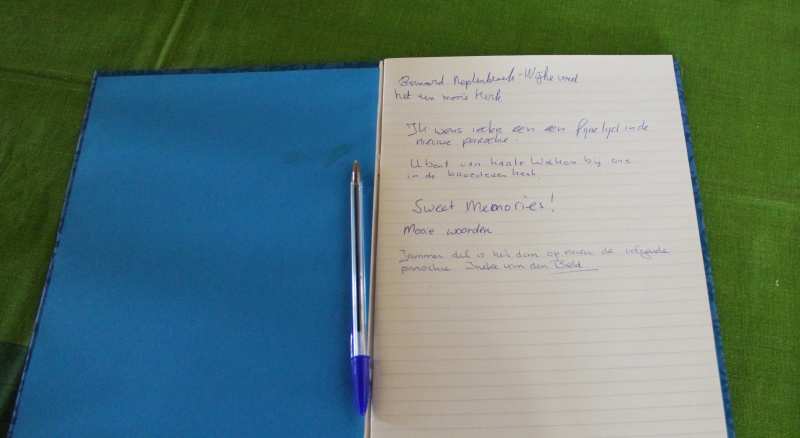 Bernard -Wijhe vond
het een mooie Kerk
Ik wens ieder een een fijne tijd in de
nieuwe parochie.
U bent van harte Welkom bij ons
in de broederenkerk.
Sweet Memories!
Mooie woorden
Jammer dit is het dan op naar de volgende
parochie. Ineke van den